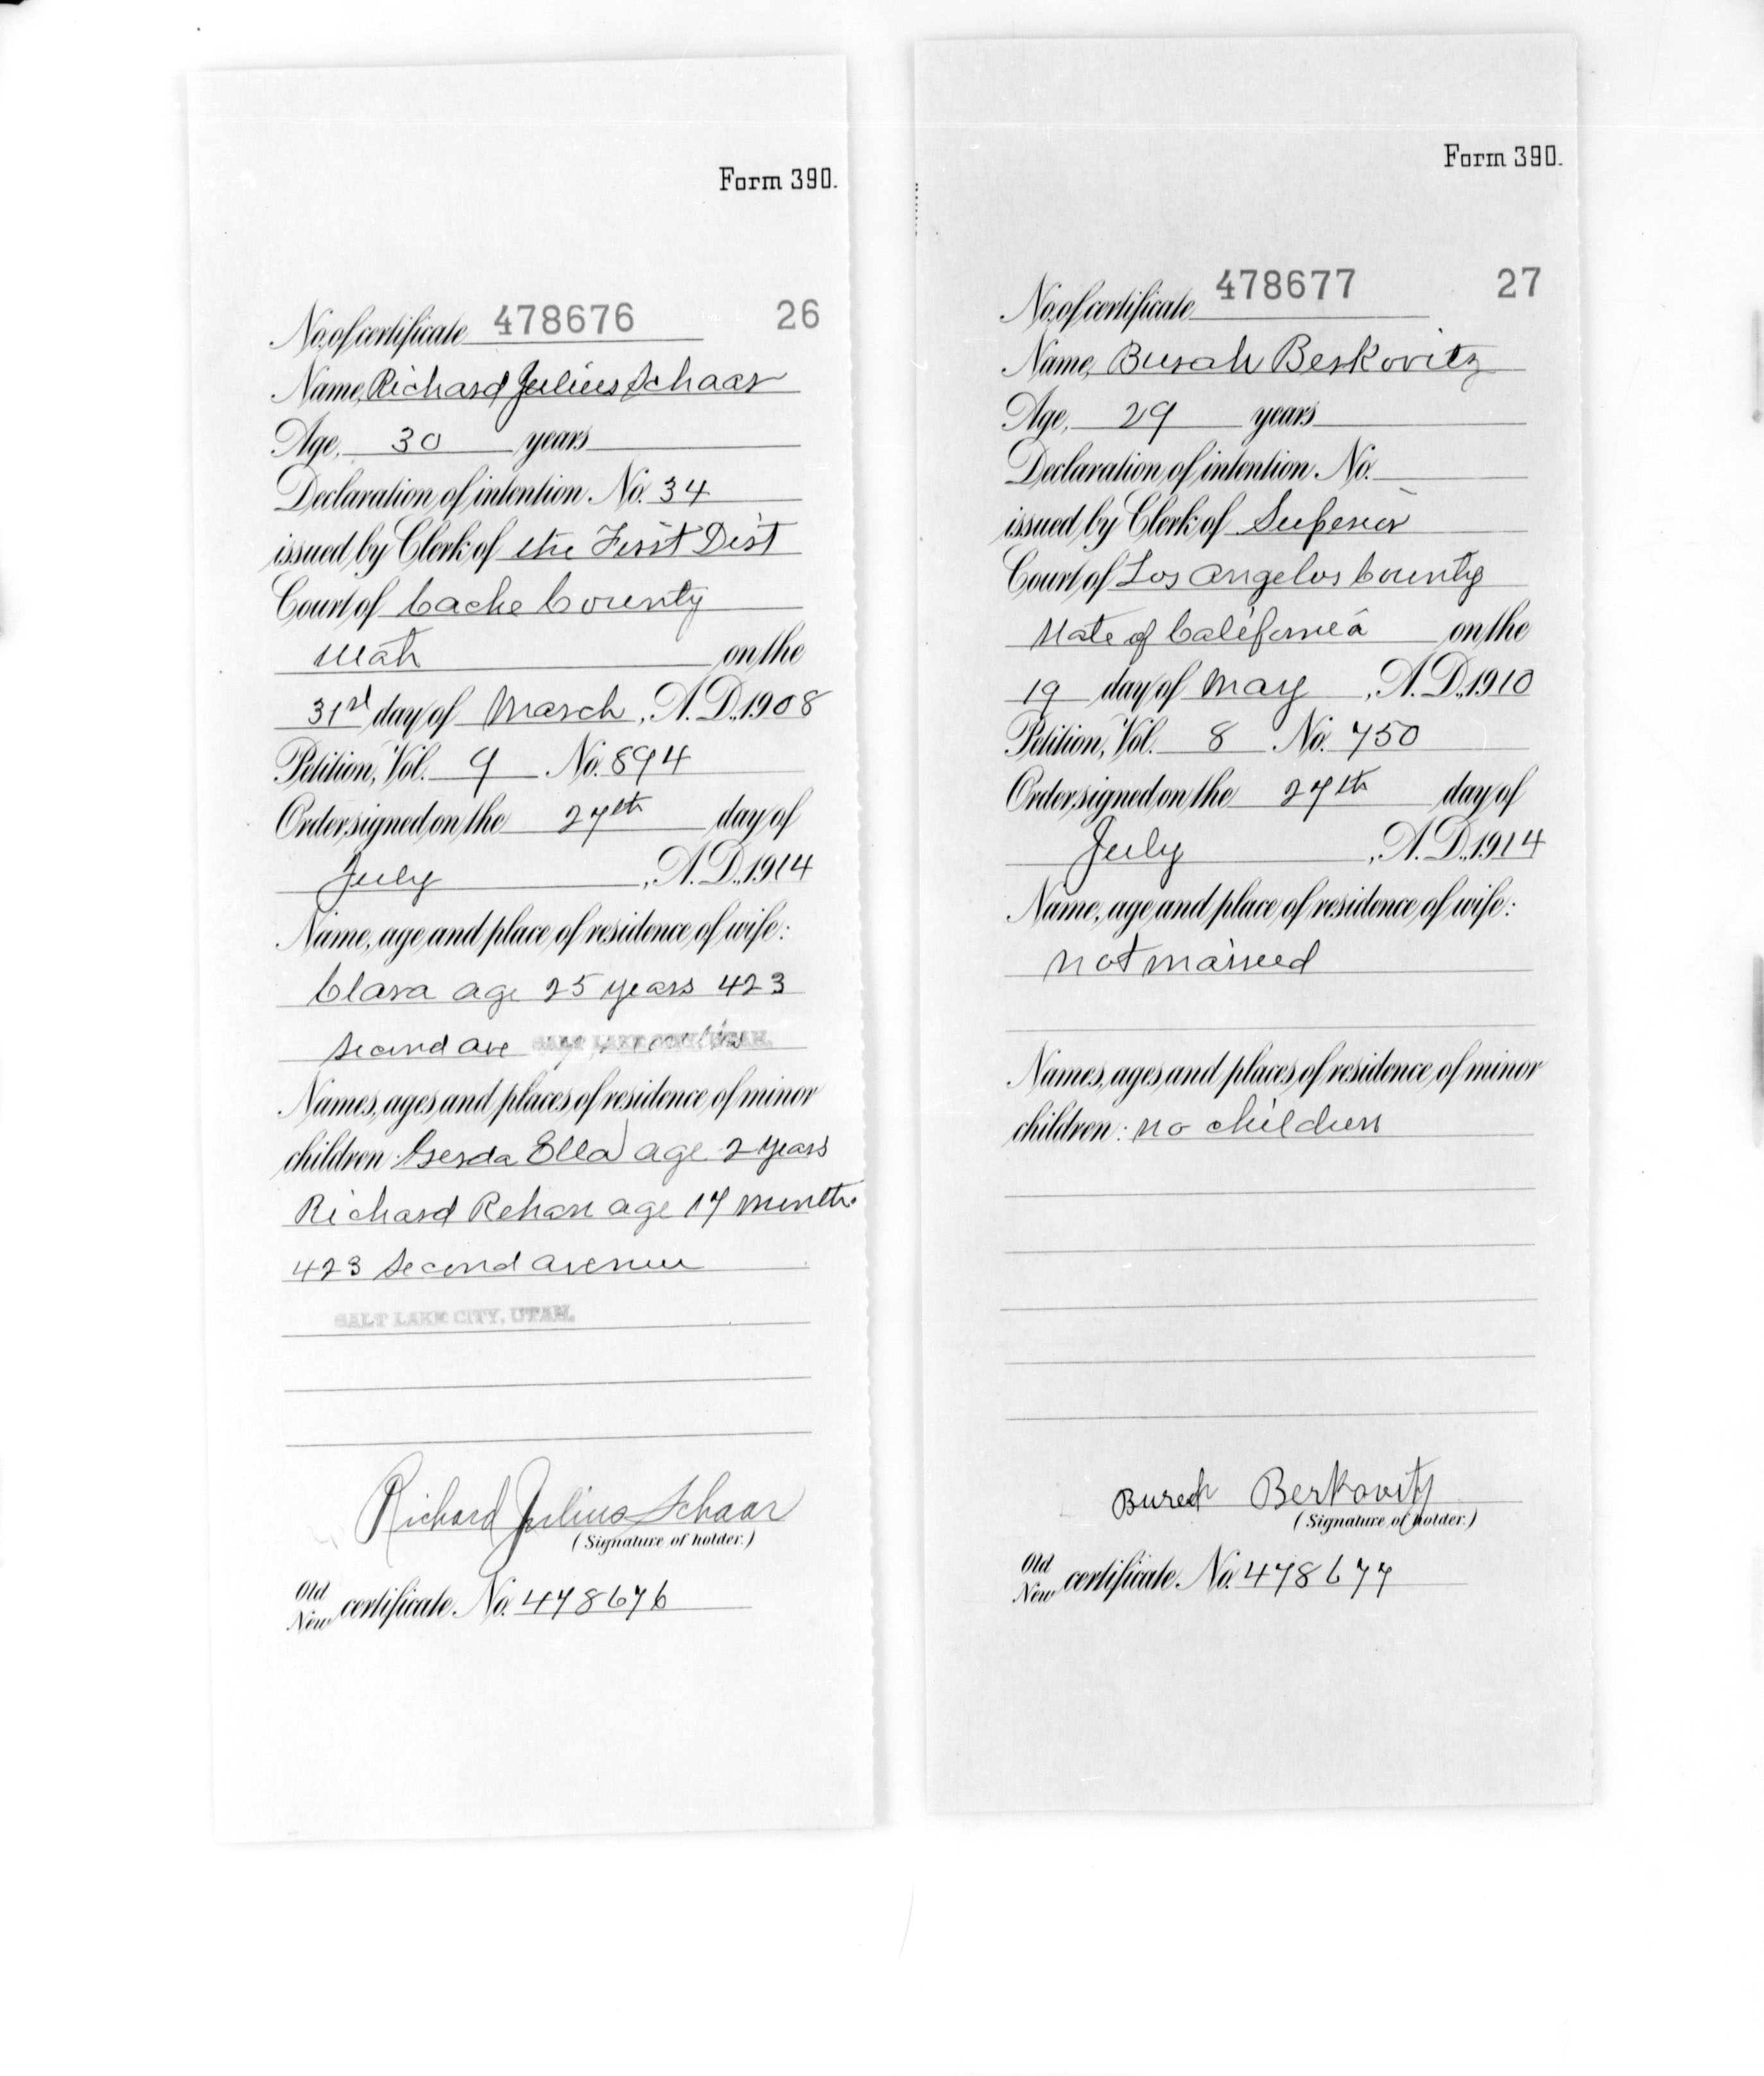 Form 390.
No. of certificate 478676 26
Name, Richard Julius Schaar
Age, 30 years
Declaration of intention No. 34
issued by Clerk of the First Dist
Court of Cache County
Utah on the
31st day of March, A.D. 1908
Petition, Vol. 9 No. 894
Order signed on the 27th day of
July, A.D. 1914
Name, age and place of residence of wife:
Clara age 25 years 423
Second ave SALT LAKE CITY, UTAH.
Names, ages and places of residence of minor
children: Gerda Ella age 2 years
Richard age 17 months
423 Second avenue
SALT LAKE CITY, UTAH.
Richard Julius Schaar
(Signature of holder.)
Old
New certificate No. 478676
Form 390.
No. of certificate 478677 27
Name, Burah Berkovitz
Age, 29 years
Declaration of intention No.
issued by Clerk of Superior
Court of Los Angelos County
State of California on the
19 day of May, A.D. 1910
Petition, Vol. 8 No. 750
Order signed on the 27th day of
July, A.D. 1914
Name, age and place of residence of wife:
not married
Names, ages and places of residence of minor
children: no children
Burech Berkovitz
(Signature of holder.)
Old
New certificate No. 478677